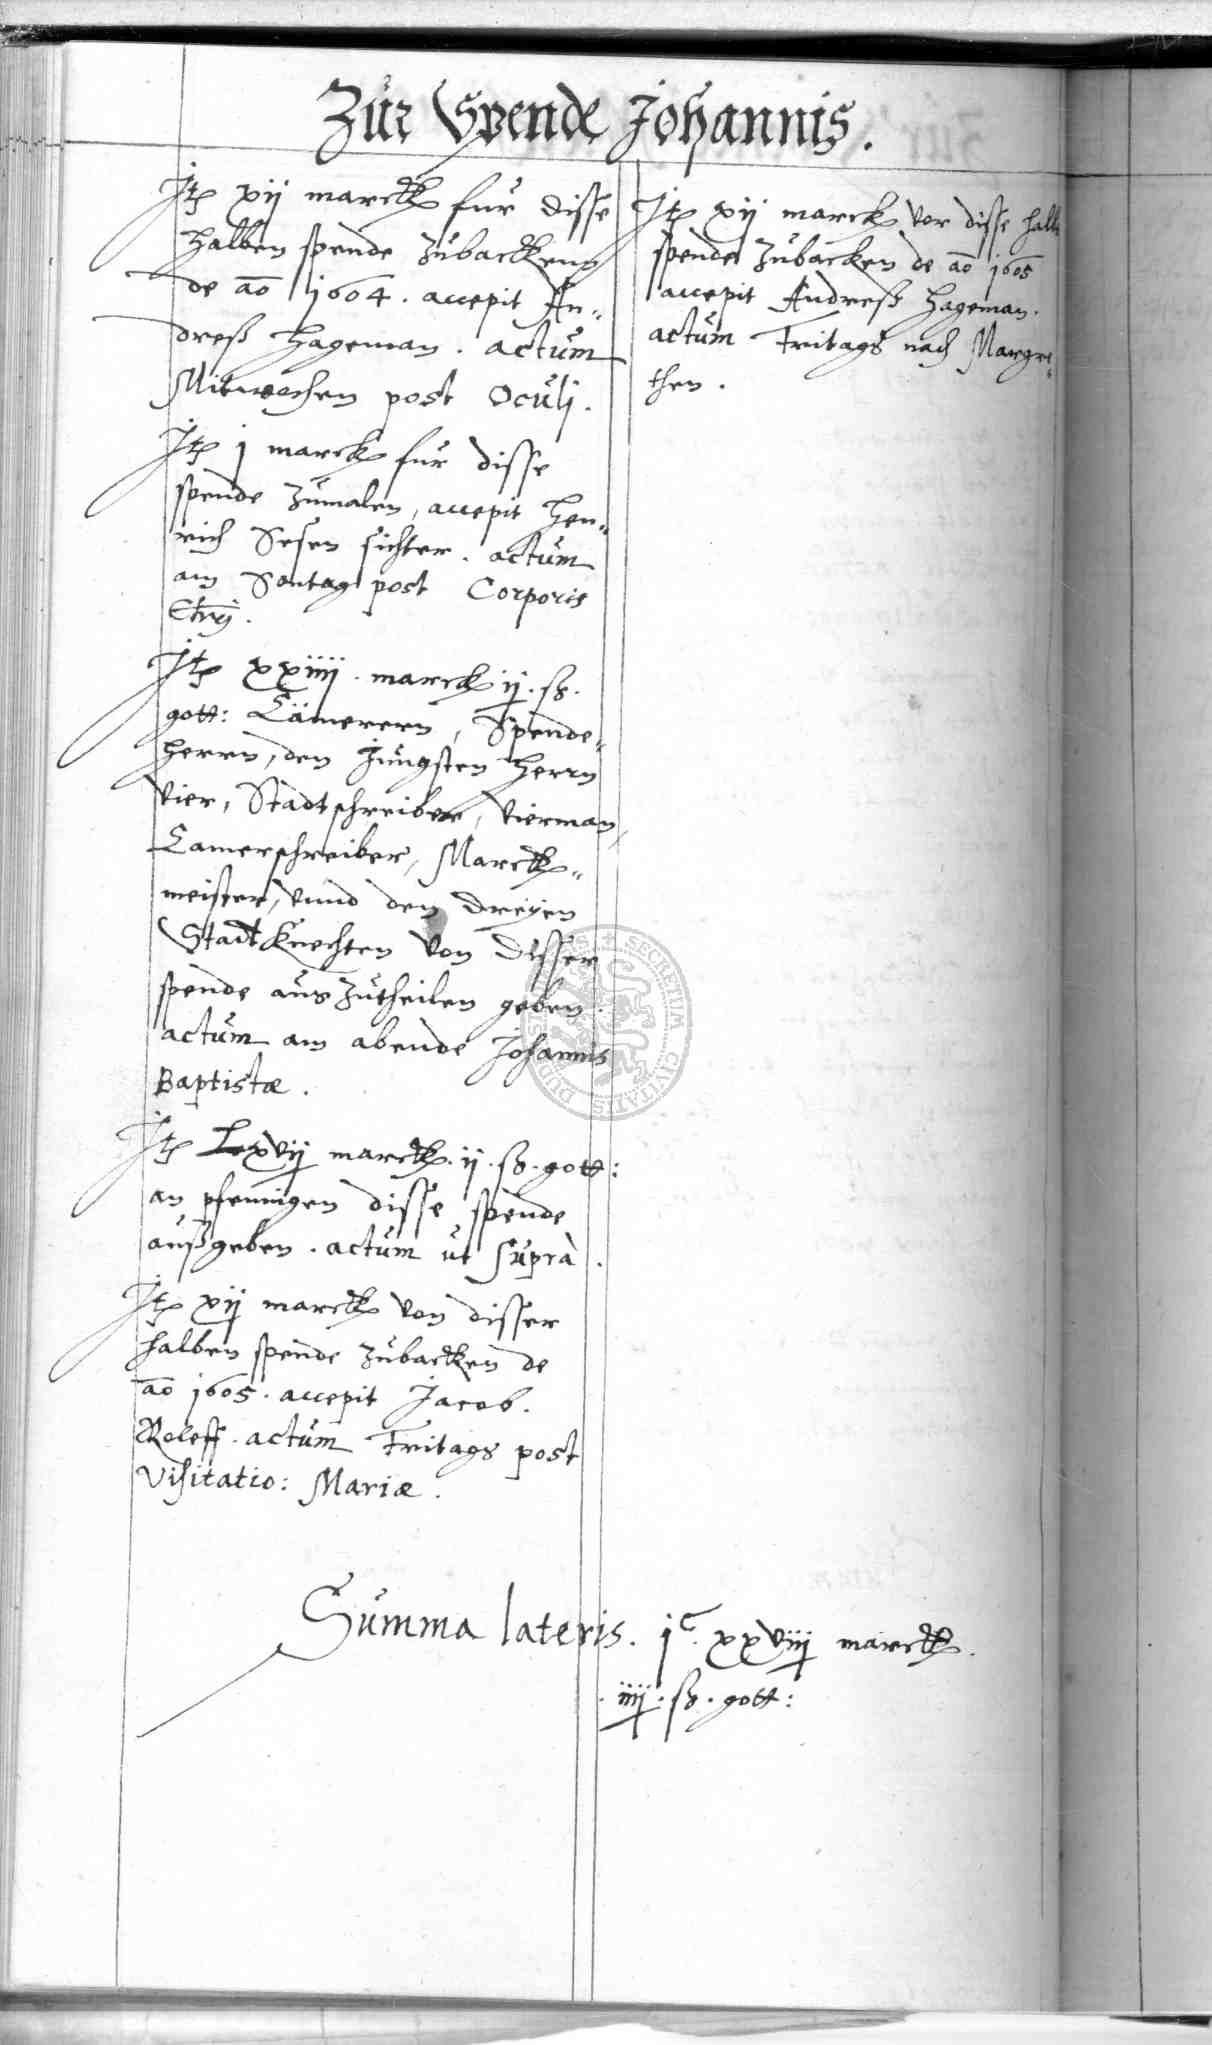 Zur Spende Johannis.
Itp xij marck fur disse
halben spende zubacken
de ao 1604. accepit An-
dreß Hageman. actum
Mitwochen post Oculj.
Itp j marck fur disse
spende zumalen, accepit Hen-
rich sichter. actum
am Sontag post Corporis
Chrj.
Itp xxiiij. marck ij. ß.
gott: Cämerern, Spende-
herrn, den jungsten Herrn
vier, Stadtschreiber, vierman,
Camerschreiber, Marck-
meister, vnnd den dreyen
StadtKnechten von disser
spende auszutheilen geben.
actum am abende Johannis
Baptistæ.
Itp Lxvij marck. ij. ß. gott:
an pfennigen disse spende
außgeben. actum ut supra.
Itp xij marck von disser
halben spende zubacken de
ao 1605. accepit Jacob.
Roleff. actum Fritags post
Visitatio: Mariæ.
Itp xij marck vor disse halb
spende zubacken de ao 1605
accepit Andreß Hageman.
actum Fritags nach Margre-
then.
Summa lateris. jc. xxviij marck.
iiij. ß. gott:
SECRETUM CIVITATIS